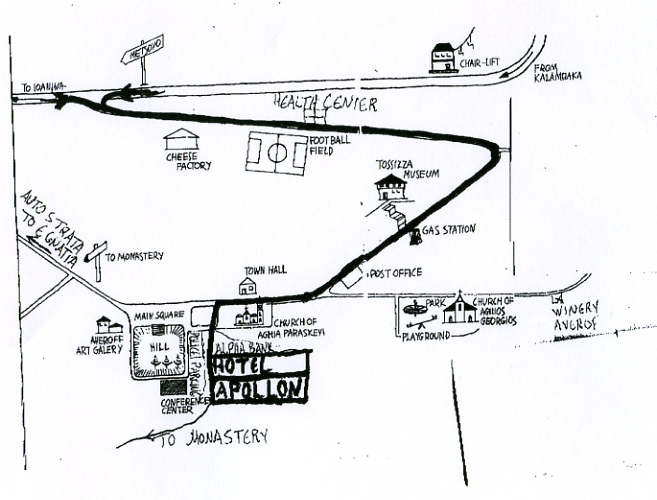 METSOVO
CHAIR-LIFT
FROM
KALAMBAKA
TO IOANINA
HEALTH CENTER
FOOTBALL
FIELD
CHEESE
FACTORY
TOSSIZZA
MUSEUM
GAS STATION
AUTO STRATA
TO EGNATIA
TO MONASTERY
TOWN HALL
POST OFFICE
MAIN SQUARE
HILL
CHURCH OF
AGHIA PARASKEVI
PARK
CHURCH OF
AGHIOS
GEORGIOS
PLAYGROUND
WINERY
AVEROF
AVEROFF
ART GALERY
ALPHA BANK
HOTEL
APOLLON
PARKING
CONFERENCE
CENTER
TO MONASTERY